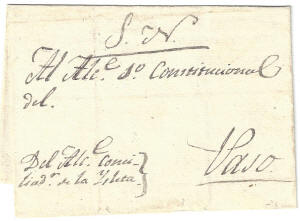 S. N.
Al Alc.e 1.o Constitucional
del.
Del Alc.e Conci-
liad.r de la Isleta
Vaso.